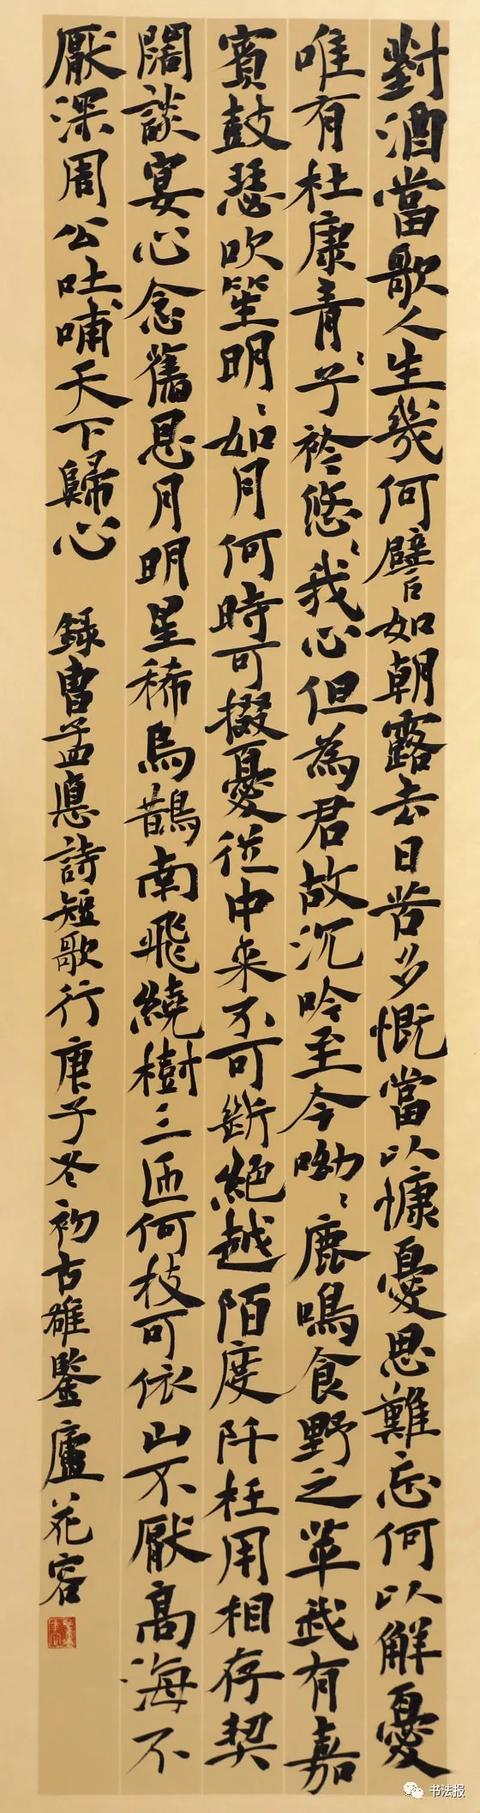 對酒當歌人生幾何譬如朝露去日苦多慨當以慷憂思難忘何以解憂
唯有杜康青々子衿悠々我心但為君故沉吟至今呦々鹿鳴食野之苹我有嘉
賓鼓瑟吹笙明々如月何時可掇憂從中来不可斷絕越陌度阡枉用相存契
闊談宴心念舊恩月明星稀烏鵲南飛繞樹三匝何枝可依山不厭高海不
厭深周公吐哺天下歸心 錄曹孟德詩短歌行庚子冬初古雄鑒廬花容
书法报